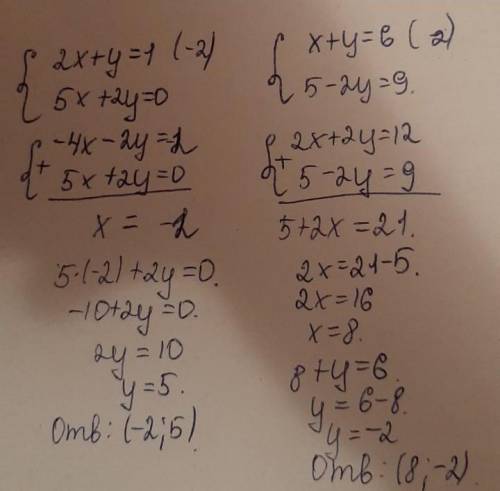 2x+y=1 (-2)
5x+2y=0
-4x-2y=-2
+ 5x+2y=0
x = -2
5·(-2)+2y=0.
-10+2y=0.
2y=10
y=5.
Отв: (-2;5)
x+y=6 (2)
5-2y=9.
2x+2y=12
+ 5-2y=9
5+2x=21.
2x=21-5.
2x=16
x=8.
8+y=6.
y=6-8.
y=-2
Отв: (8;-2)